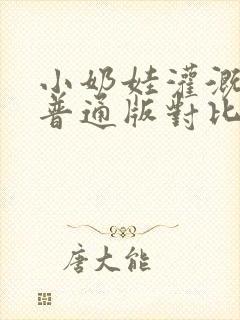 小奶娃灌溉
普通版對比
唐大能